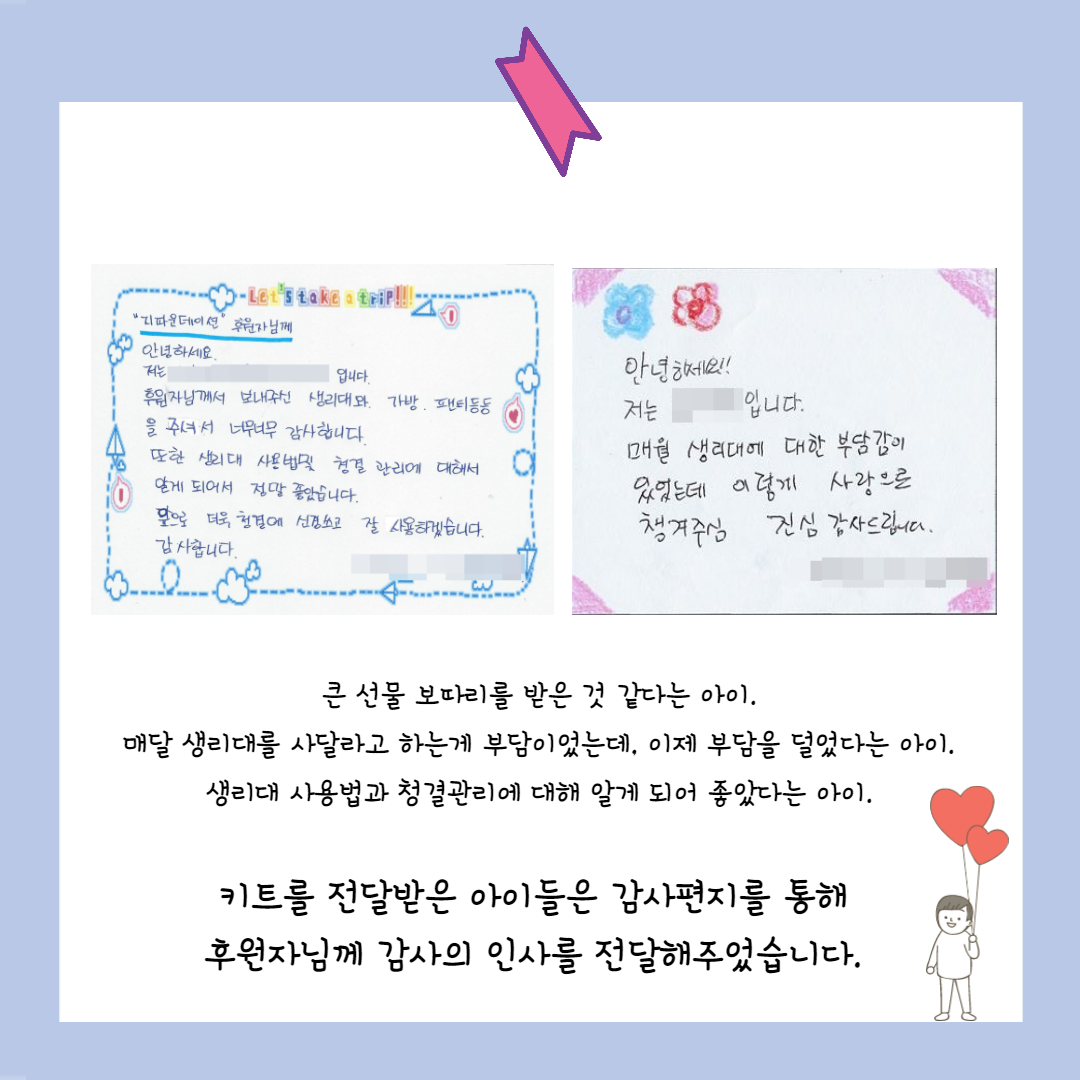 Let's take a trip!!!
"디파운데이션" 후원자님께
안녕하세요.
저는 입니다.
후원자님께서 보내주신 생리대와 가방, 팬티등등
을 주셔서 너무너무 감사합니다.
또한 생리대 사용법및 청결 관리에 대해서
알게 되어서 정말 좋았습니다.
앞으로 더욱 청결에 신경쓰고 잘 사용하겠습니다.
감사합니다.
안녕하세요!!
저는 입니다.
매월 생리대에 대한 부담감이
있었는데 이렇게 사랑으로
챙겨주심 진심 감사드립니다.
큰 선물 보따리를 받은 것 같다는 아이.
매달 생리대를 사달라고 하는게 부담이었는데, 이제 부담을 덜었다는 아이.
생리대 사용법과 청결관리에 대해 알게 되어 좋았다는 아이.
키트를 전달받은 아이들은 감사편지를 통해
후원자님께 감사의 인사를 전달해주었습니다.